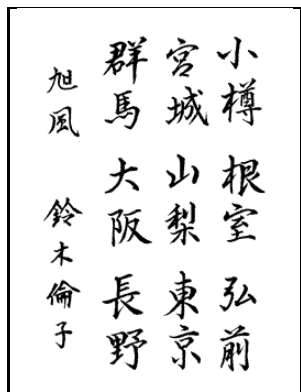 小樽 根室 弘前
宮城 山梨 東京
群馬 大阪 長野
旭風 鈴木倫子